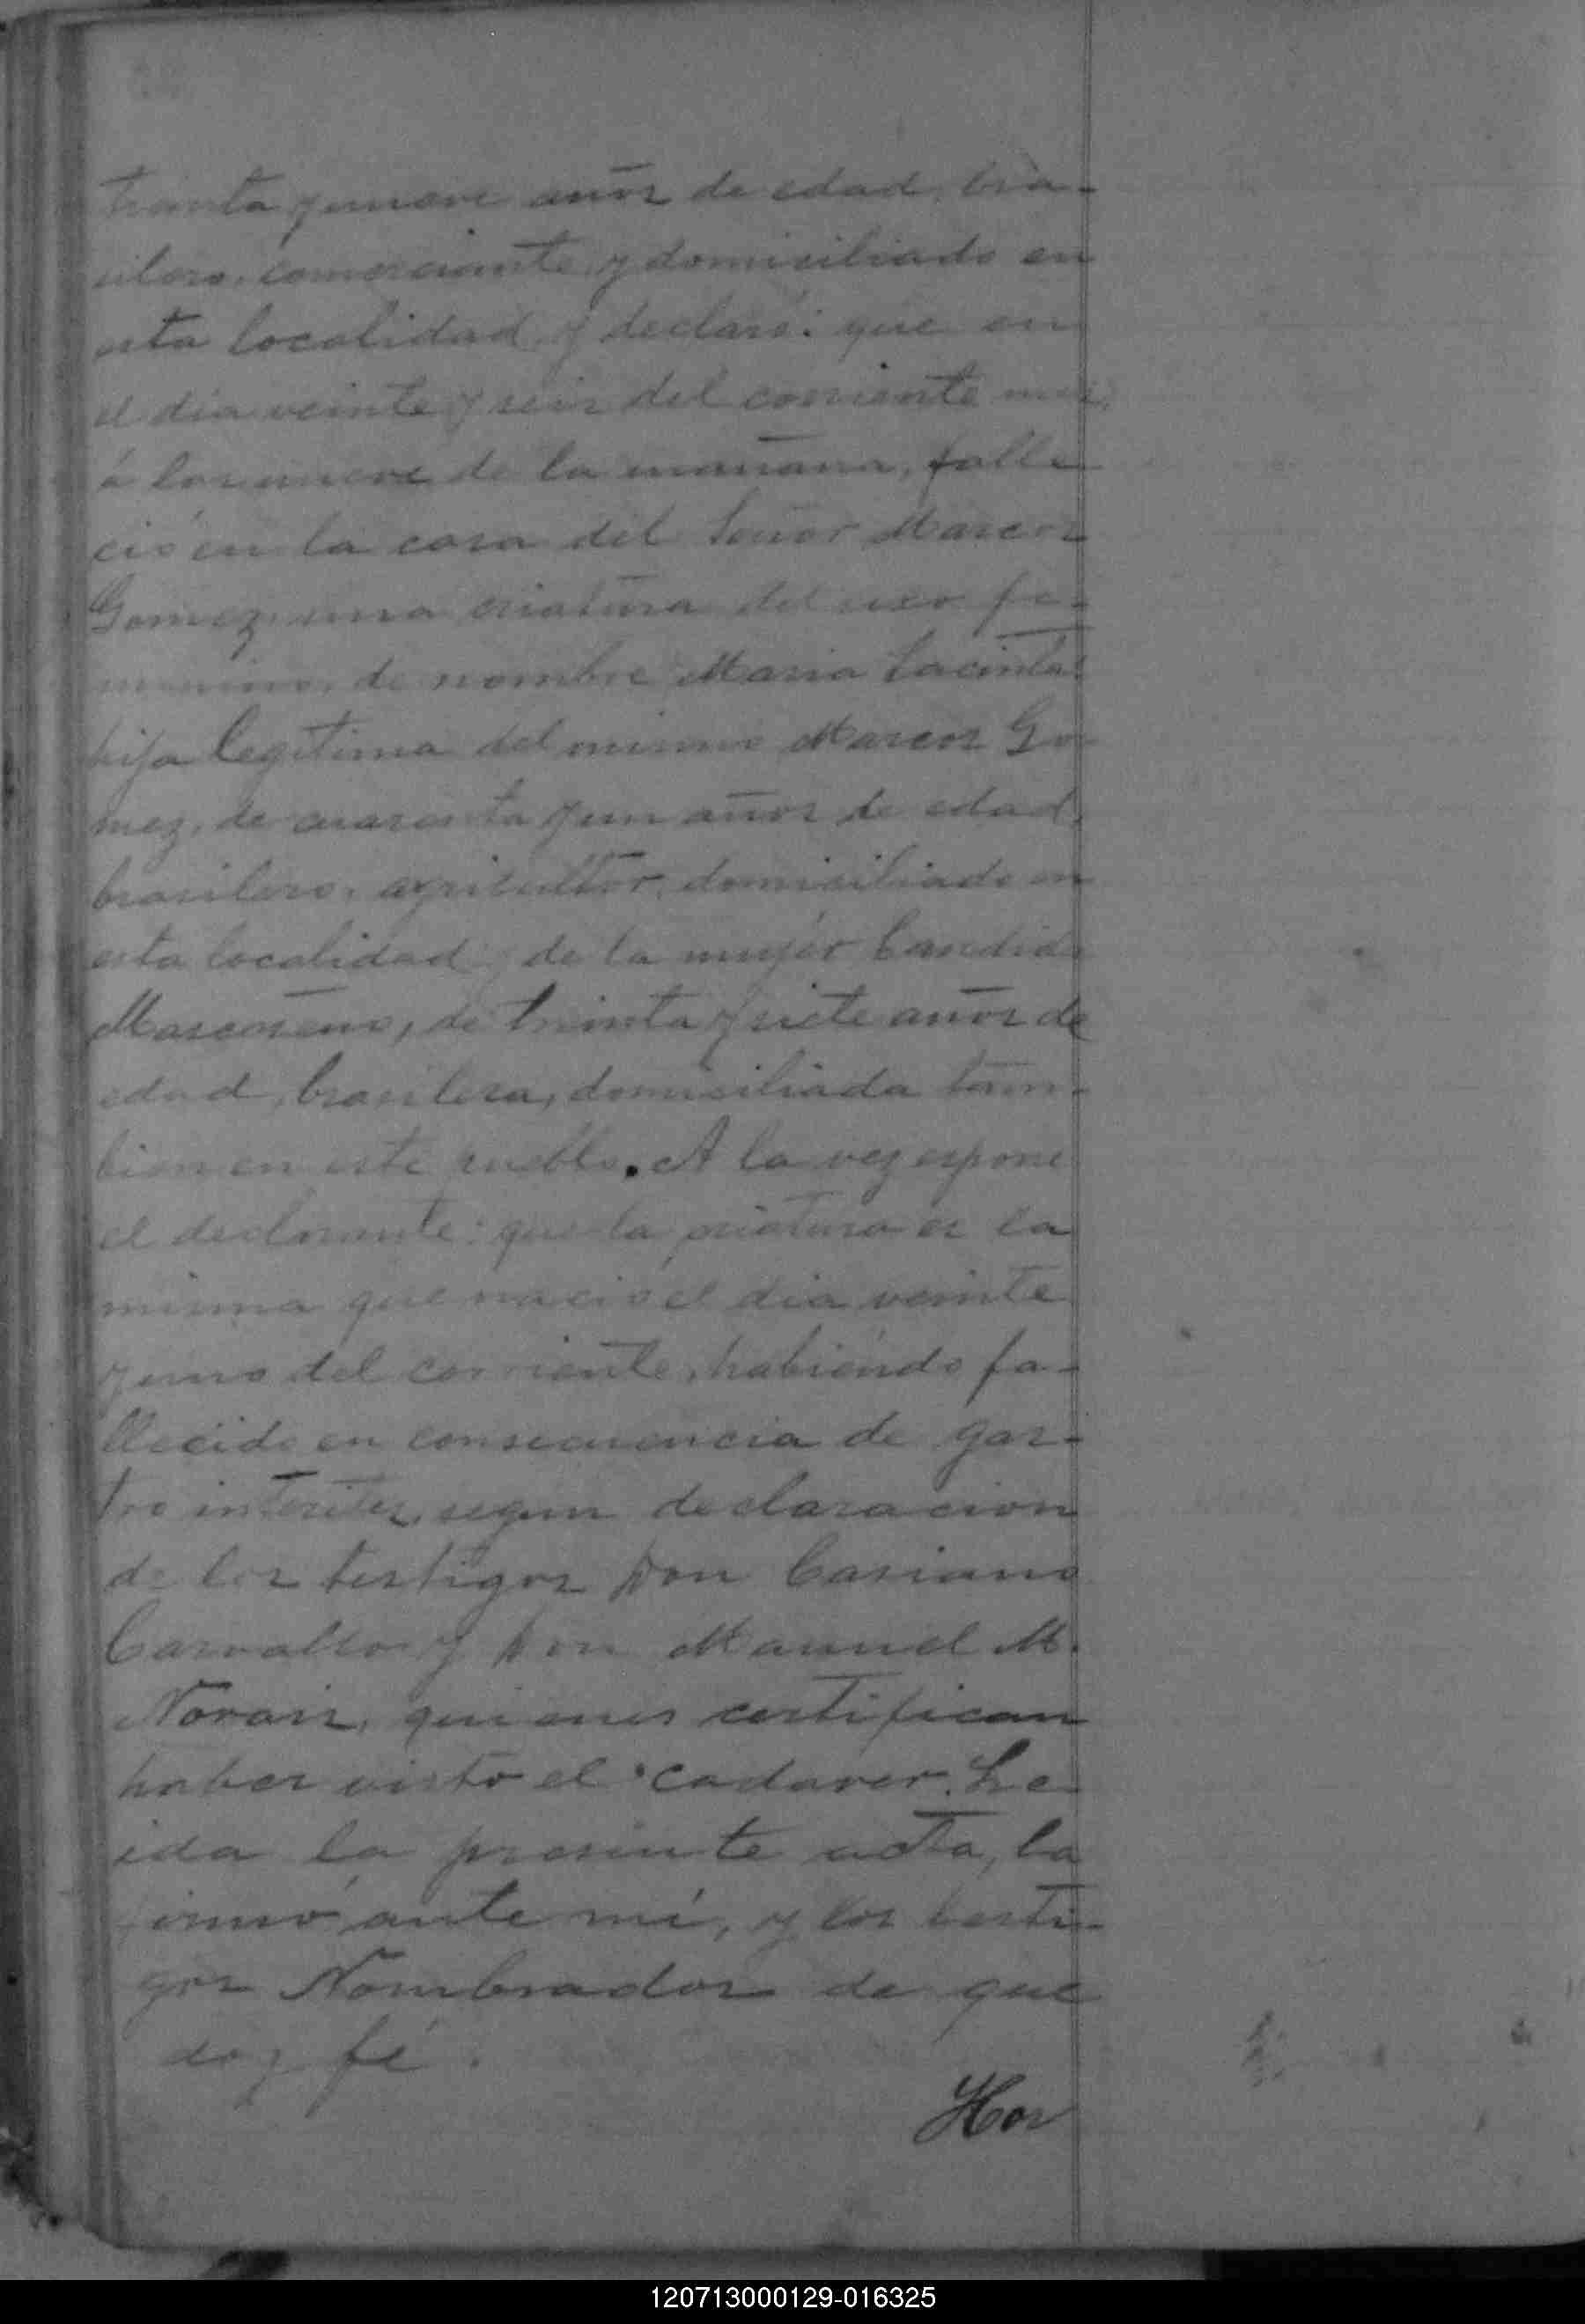 treinta y nueve años de edad, bra-
silero, comerciante, y domiciliado en
esta localidad y declaró: que en
el dia veinte y seis del corriente mes,
á las nueve de la mañana, falle
ció en la casa del Señor Marcos
Gomez, una criatura del sexo fe-
menino, de nombre Maria Jacinta
hija legitima del mismo Marcos Go-
mez, de cuarenta y un años de edad,
brasilero, agricultor, domiciliado en
esta localidad y de la mujér Candida
de treinta y siete años de
edad, brasilera, domiciliada tam-
bien en este pueblo. A la vez espone
el declarante: que la criatura es la
misma que nació el dia veinte
y uno del corriente, habiéndo fa-
llecido en consecuencia de gas-
tro interites, segun declaracion
de los testigos Don Casiano
Carvallo y Don Manuel M.
Novais, quienes certifican
haber visto el cadaver. Le-
ida la presente acta, la
firmó ante mí, y los testi-
gos Nombrados de que
doy fé.
Hor
120713000129-016325